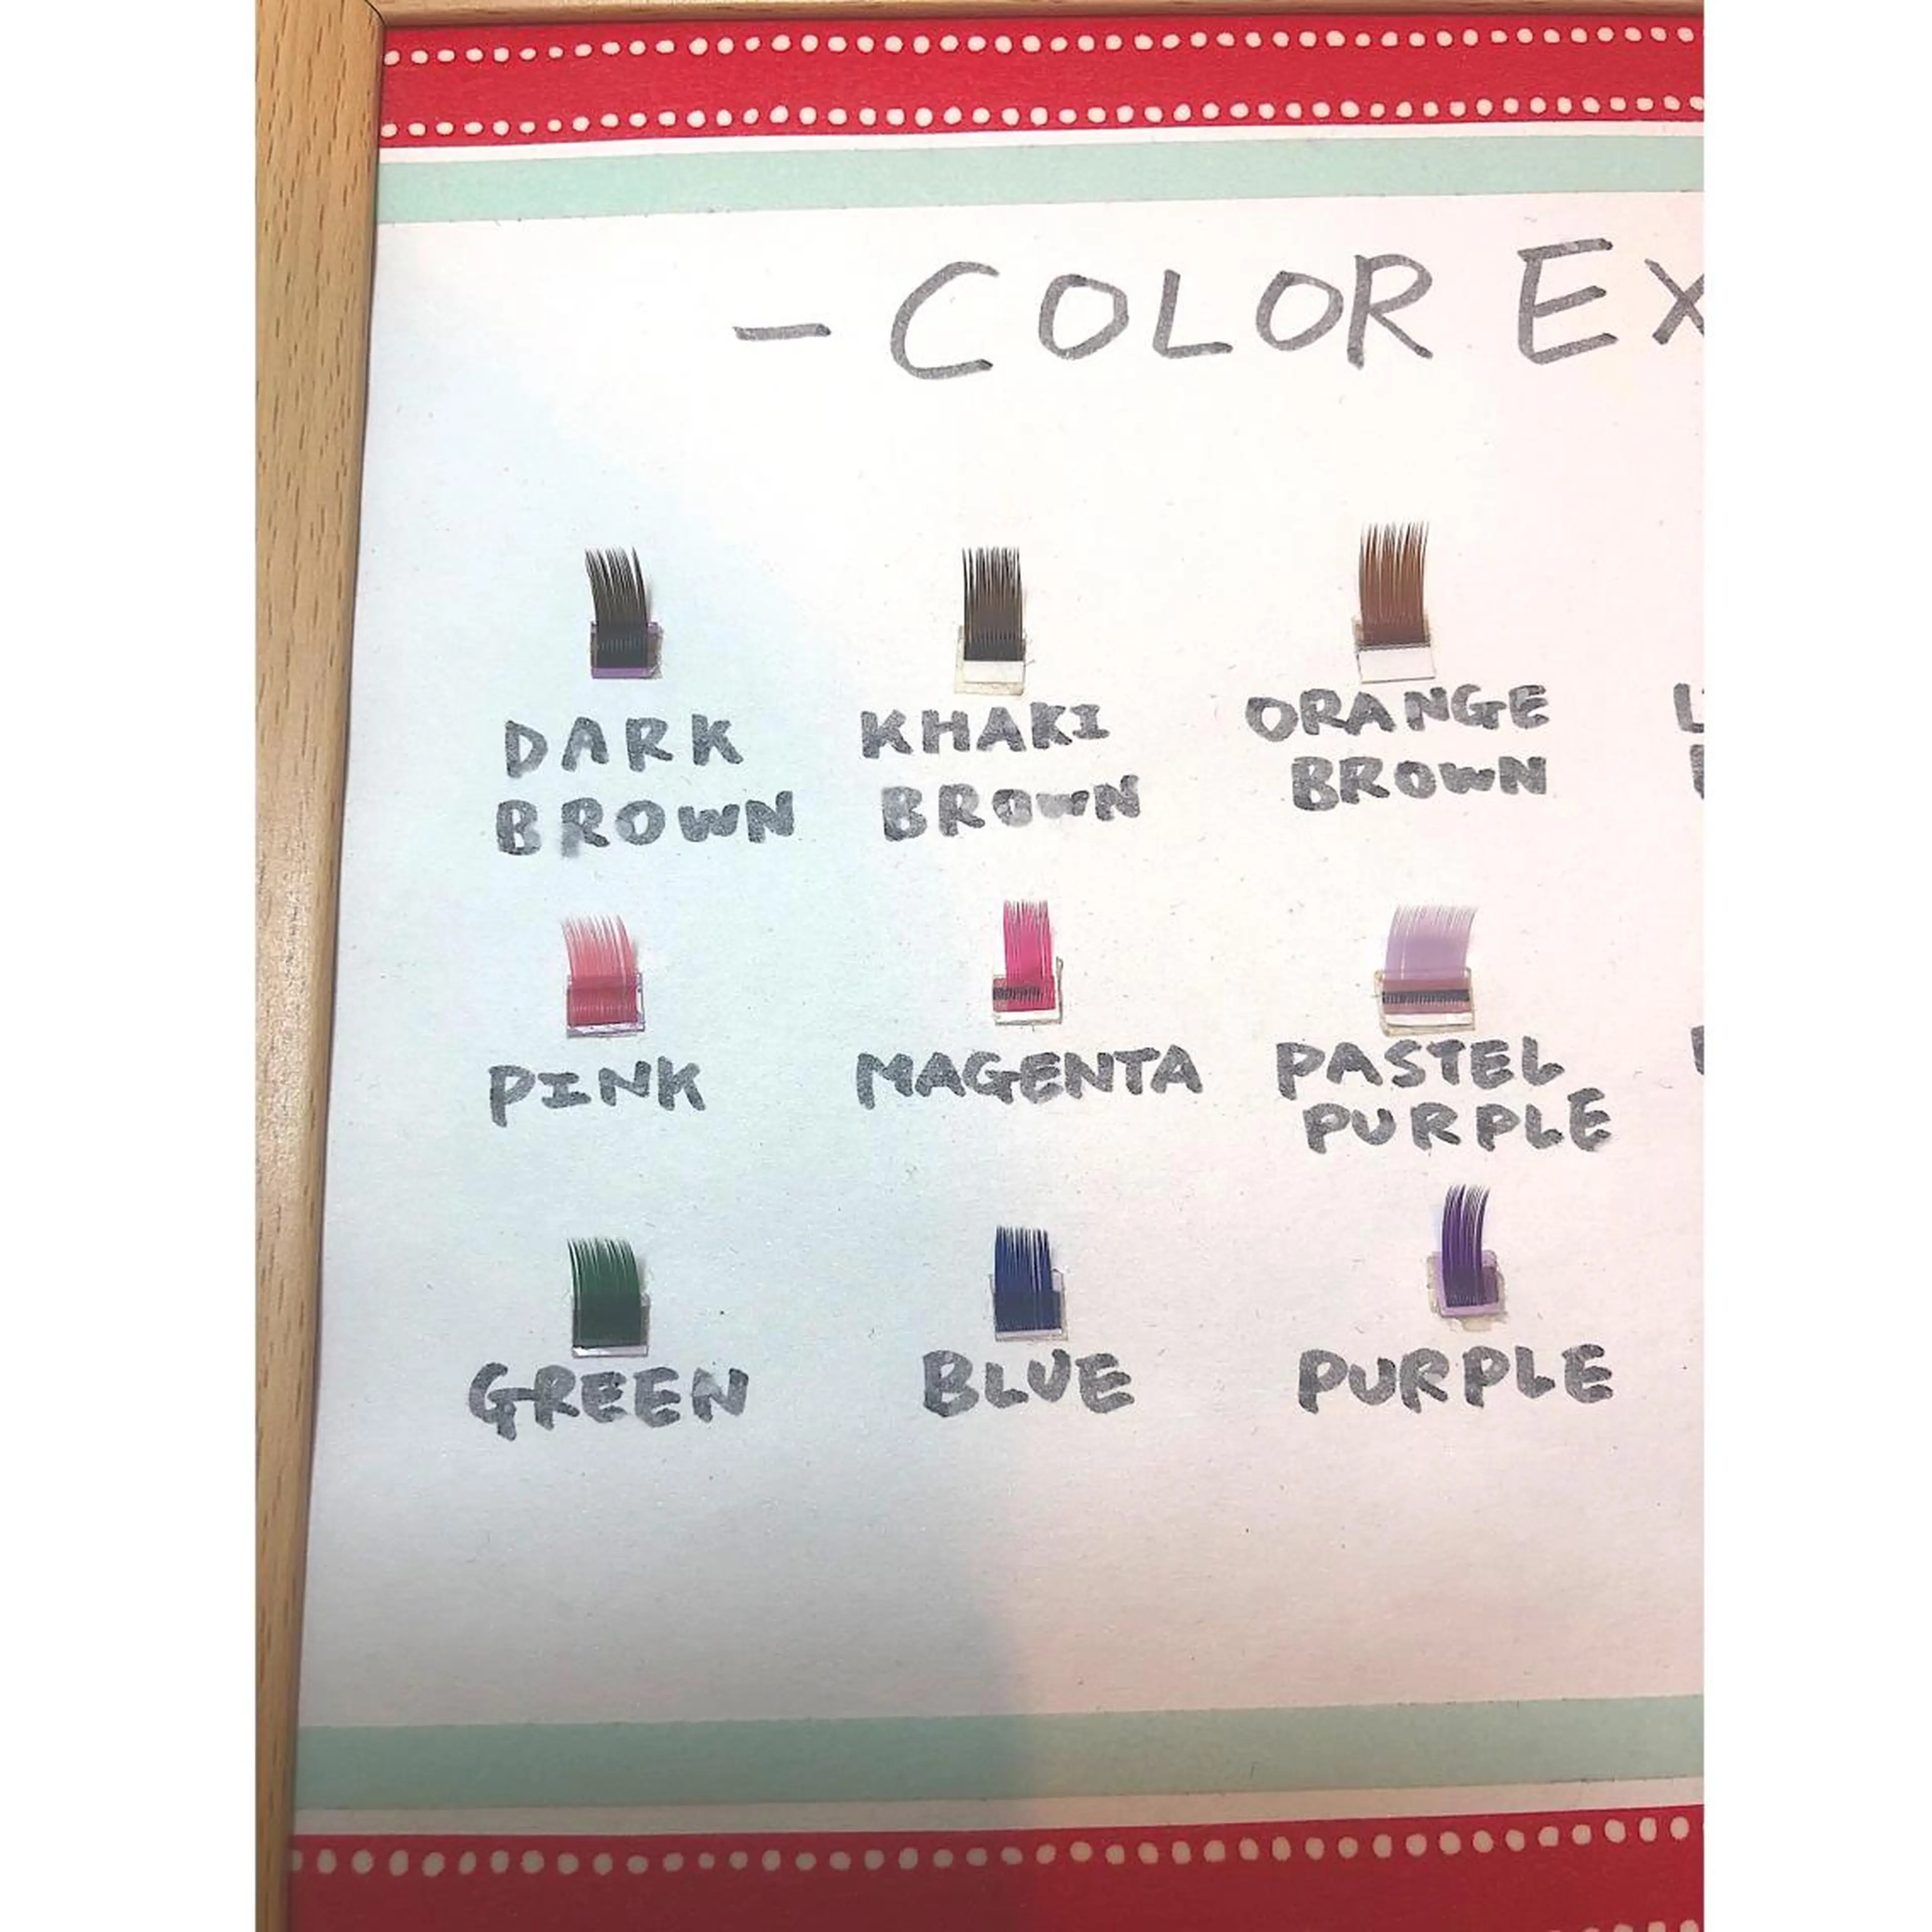 - COLOR EX
DARK
BROWN
KHAKI
BROWN
ORANGE
BROWN
PINK
MAGENTA
PASTEL
PURPLE
GREEN
BLUE
PURPLE